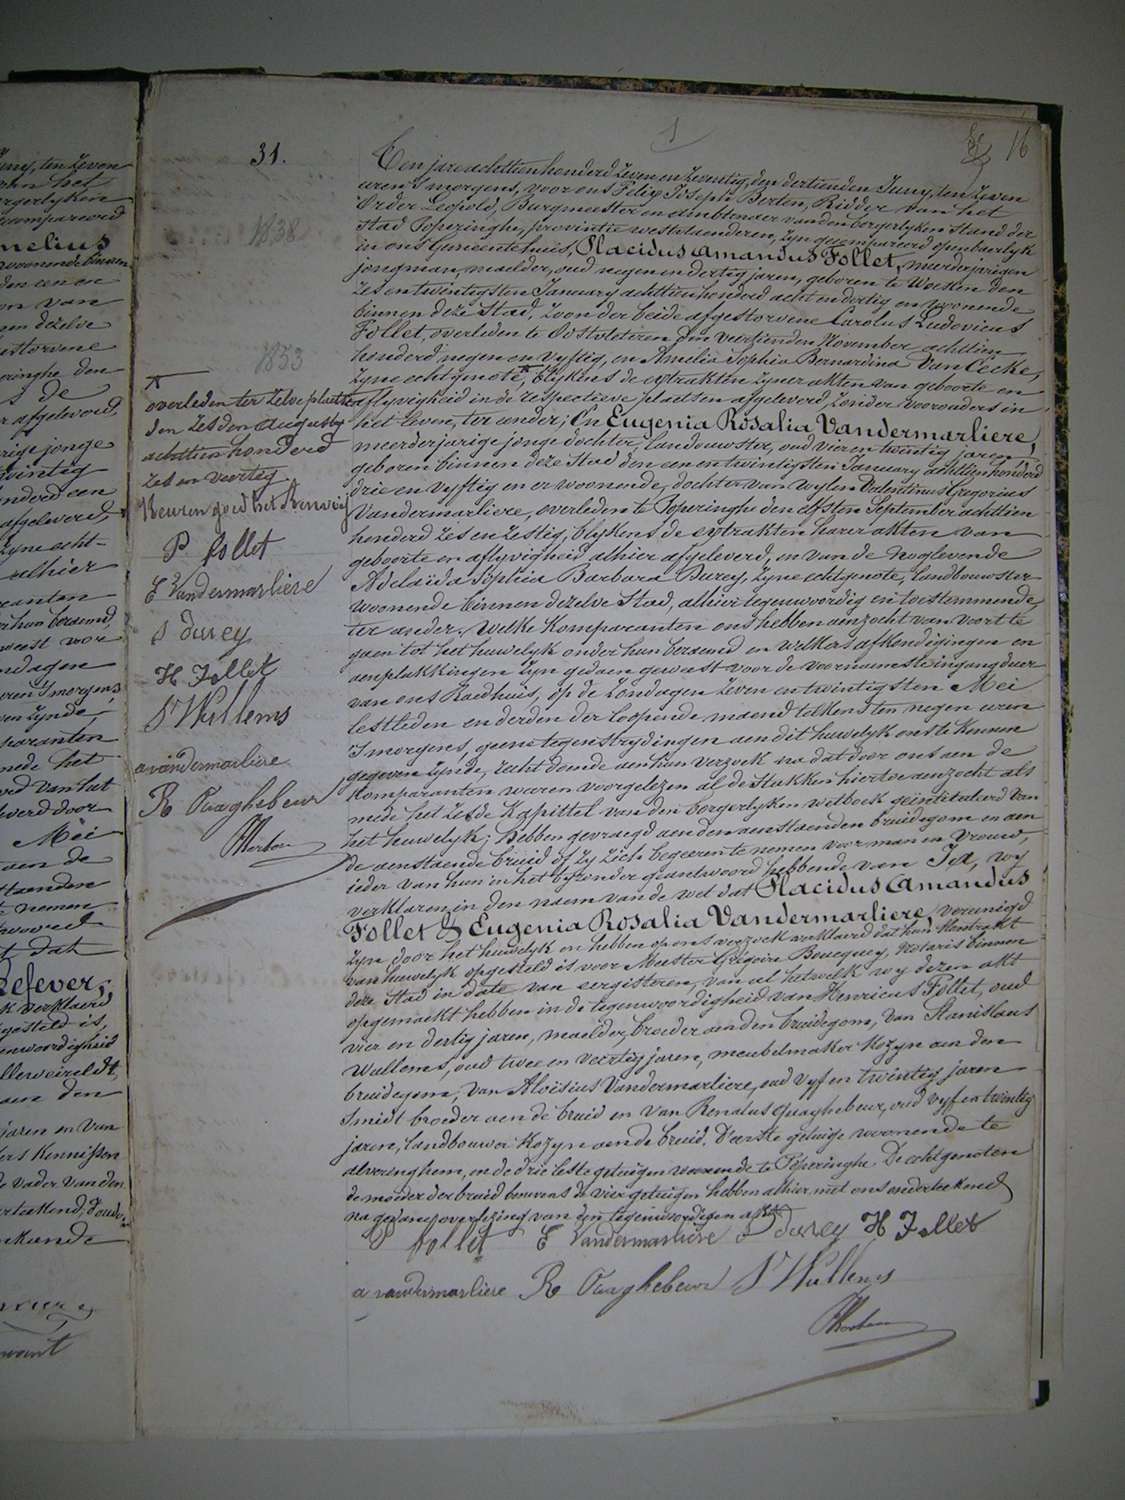 1
16
31.
Ten jare achttien honderd zeven en zeventig, den dertienden Juny, ten zeven
uren 's morgens, voor ons Felix Joseph Berten, Ridder van het
Order Leopold, Burgmeester en ambtenaer van den borgerlyken stand der
stad Poperinghe, provintie westvlaenderen, zyn gecompareerd openbaerlyk
in ons Gemeentehuis, Placidus Amandus Follet, meerderjarigen
jongman, maelder, oud negen en dertig jaren, geboren te Woesten den
zes en twintigsten January achttien honderd acht en dertig en woonende
binnen deze Stad, zoon der beide afgestorvene Carolus Ludovicus
Follet, overleden te Oostvleteren den veertienden November achttien
honderd negen en vyftig, en Amelia Sophia Bernardina Van Cecke,
zyne echtgenote, blykens de extrakten zyner akten van geboorte en
aflyvigheid in de respectieve plaetsen afgeleverd, zonder voorouders in
het leven, ter eender; En Eugenia Rosalia Vandermarliere,
meerderjarige jonge dochter, landbouwster, oud vier en twintig jaren,
geboren binnen deze Stad den een en twintigsten January achttien honderd
drie en vyftig en er woonende, dochter van wylen Valentinus Gregorius
Vandermarliere, overleden te Poperinghe den elfsten September achttien
honderd zes en zestig, blykens de extrakten harer akten van
geboorte en aflyvigheid alhier afgeleverd, en van de noglevende
Adelaïda Sophia Barbara Durey, zyne echtgenote, landbouwster
woonende binnen dezelve Stad, alhier tegenwoordig en toestemmende
ter ander. Welke Komparanten ons hebben aenzocht van voort te
gaen tot het huwelyk onder hun beraemd en welkers afkondigingen en
aenplakkingen zyn gedaen geweest voor de voornaemste ingangdeur
van ons Raedhuis, op de Zondagen zeven en twintigsten Mei
lestleden en derden der loopende maend telkens ten negen uren
's morgens, geene tegenstrydingen aen dit huwelyk ons te kennen
gegeven zynde, recht doende aen hun verzoek na dat door ons aen de
Komparanten waren voorgelezen al de stukken hiertoe aenzocht als
mede het zesde Kapittel van den borgerlyken wetboek geïntituleerd Van
het huwelyk; hebben gevraegd aen den aenstaenden bruidegom en aen
de aenstaende bruid of zy zich begeeren te nemen voor man en vrouw,
ieder van hun in het byzonder geantwoord hebbende van Ja, wy
verklaren in den naem van de wet dat Placidus Amandus
Follet & Eugenia Rosalia Vandermarliere, vereenigd
zyn door het huwelyk en hebben op ons verzoek verklaerd dat hun Kontrakt
van huwelyk opgesteld is voor Meester Grégoire Boucquey, Notaris binnen
deze Stad in date van eergisteren, van al hetwelk wy dezen akt
opgemaekt hebben in de tegenwoordigheid van Henricus Follet, oud
vier en dertig jaren, maelder, broeder aen den bruidegom, van Stanislaus
Wullems, oud twee en veertig jaren, meubelmaker Kozyn aen den
bruidegom, van Aloisius Vandermarliere, oud vyf en twintig jaren
smidt broeder aen de bruid en van Renatus Quaghebeur, oud vyf en twintig
jaren, landbouwer Kozyn aen de bruid. D'eerste getuige woonende te
alverenghem, en de drie leste getuigen woonende te Poperinghe. De echtgenoten
de moeder der bruid benevens de vier getuigen hebben alhier met ons onderteekend
na gedane overlezing van den tegenwoordigen akt.
P follet E Vandermarliere S durey H Follet
a vandermarliere R Quaghebeur St Wullems
overleden ter zelve plaetse
den zesden Augusty
achttien honderd
zes en veertig
Keuren goed het Renweij
P follet
E Vandermarliere
S durey
H Follet
St Wullems
a vandermarliere
R Quaghebeur